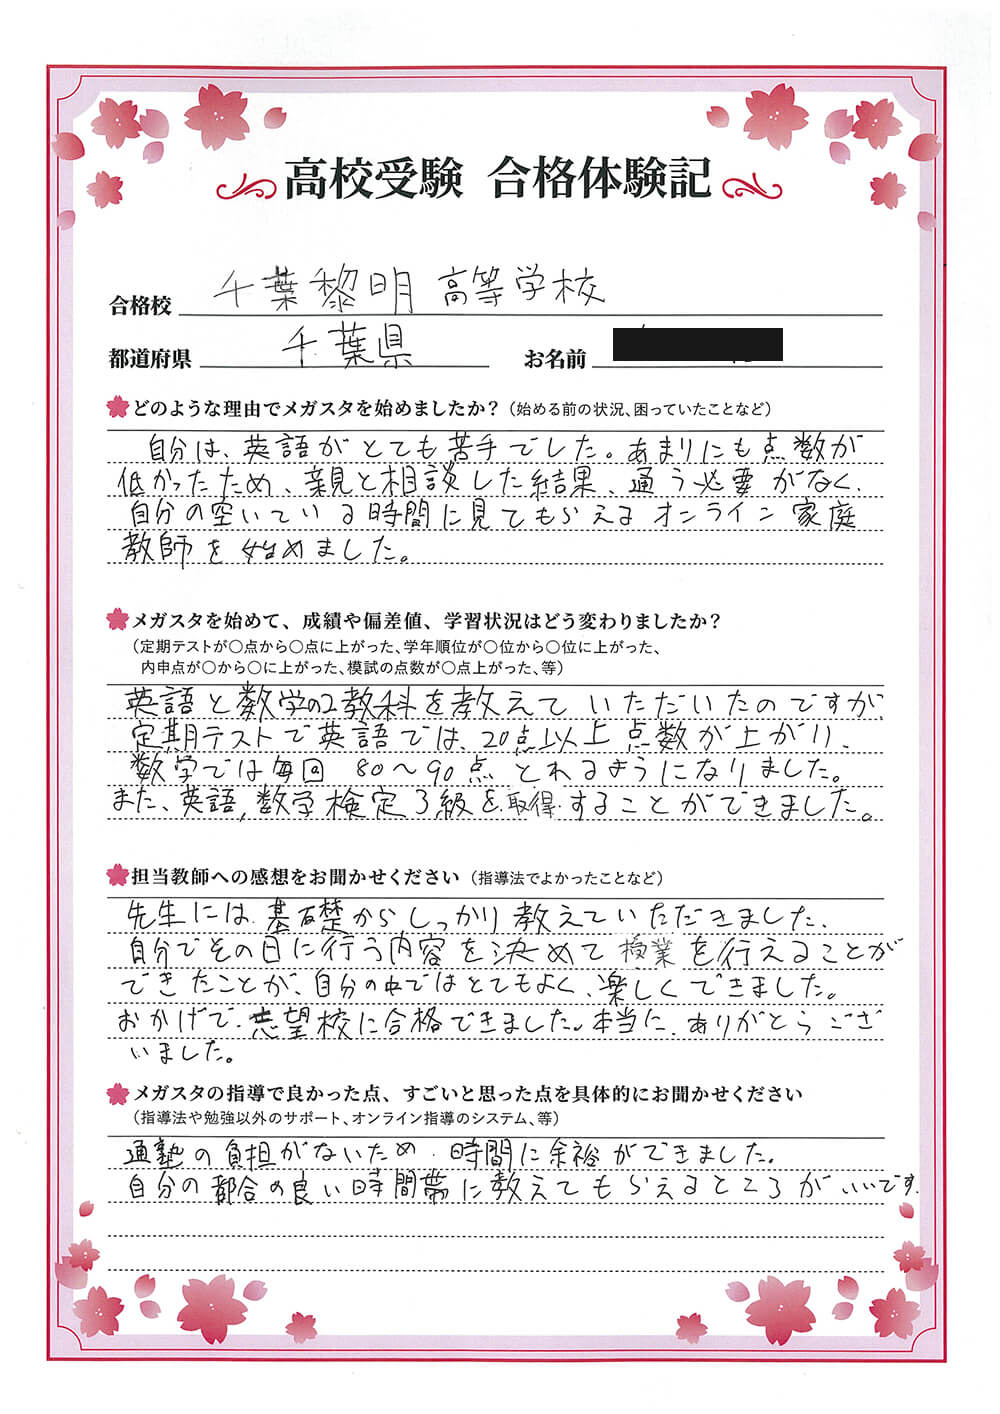 高校受験 合格体験記
合格校 千葉黎明高等学校
都道府県 千葉県 お名前
どのような理由でメガスタを始めましたか？（始める前の状況、困っていたことなど）
自分は、英語がとても苦手でした。あまりにも点数が
低かったため、親と相談した結果、通う必要がなく、
自分の空いている時間に見てもらえるオンライン家庭
教師を始めました。
メガスタを始めて、成績や偏差値、学習状況はどう変わりましたか？
（定期テストが〇点から〇点に上がった、学年順位が〇位から〇位に上がった、
内申点が〇から〇に上がった、模試の点数が〇点上がった、等）
英語と数学の2教科を教えていただいたのですが、
定期テストで英語では、20点以上点数が上がり、
数学では毎回 80〜90点 とれるようになりました。
また、英語,数学検定3級を取得することができました。
担当教師への感想をお聞かせください（指導法でよかったことなど）
先生には、基礎からしっかり教えていただきました、
自分でその日に行う内容を決めて授業を行えることが
できたことが、自分の中ではとてもよく、楽しくできました。
おかげで、志望校に合格できました。本当に、ありがとうござ
いました。
メガスタの指導で良かった点、すごいと思った点を具体的にお聞かせください
（指導法や勉強以外のサポート、オンライン指導のシステム、等）
通塾の負担がないため、時間に余裕ができました。
自分の都合の良い時間帯に教えてもらえるところがいいです.